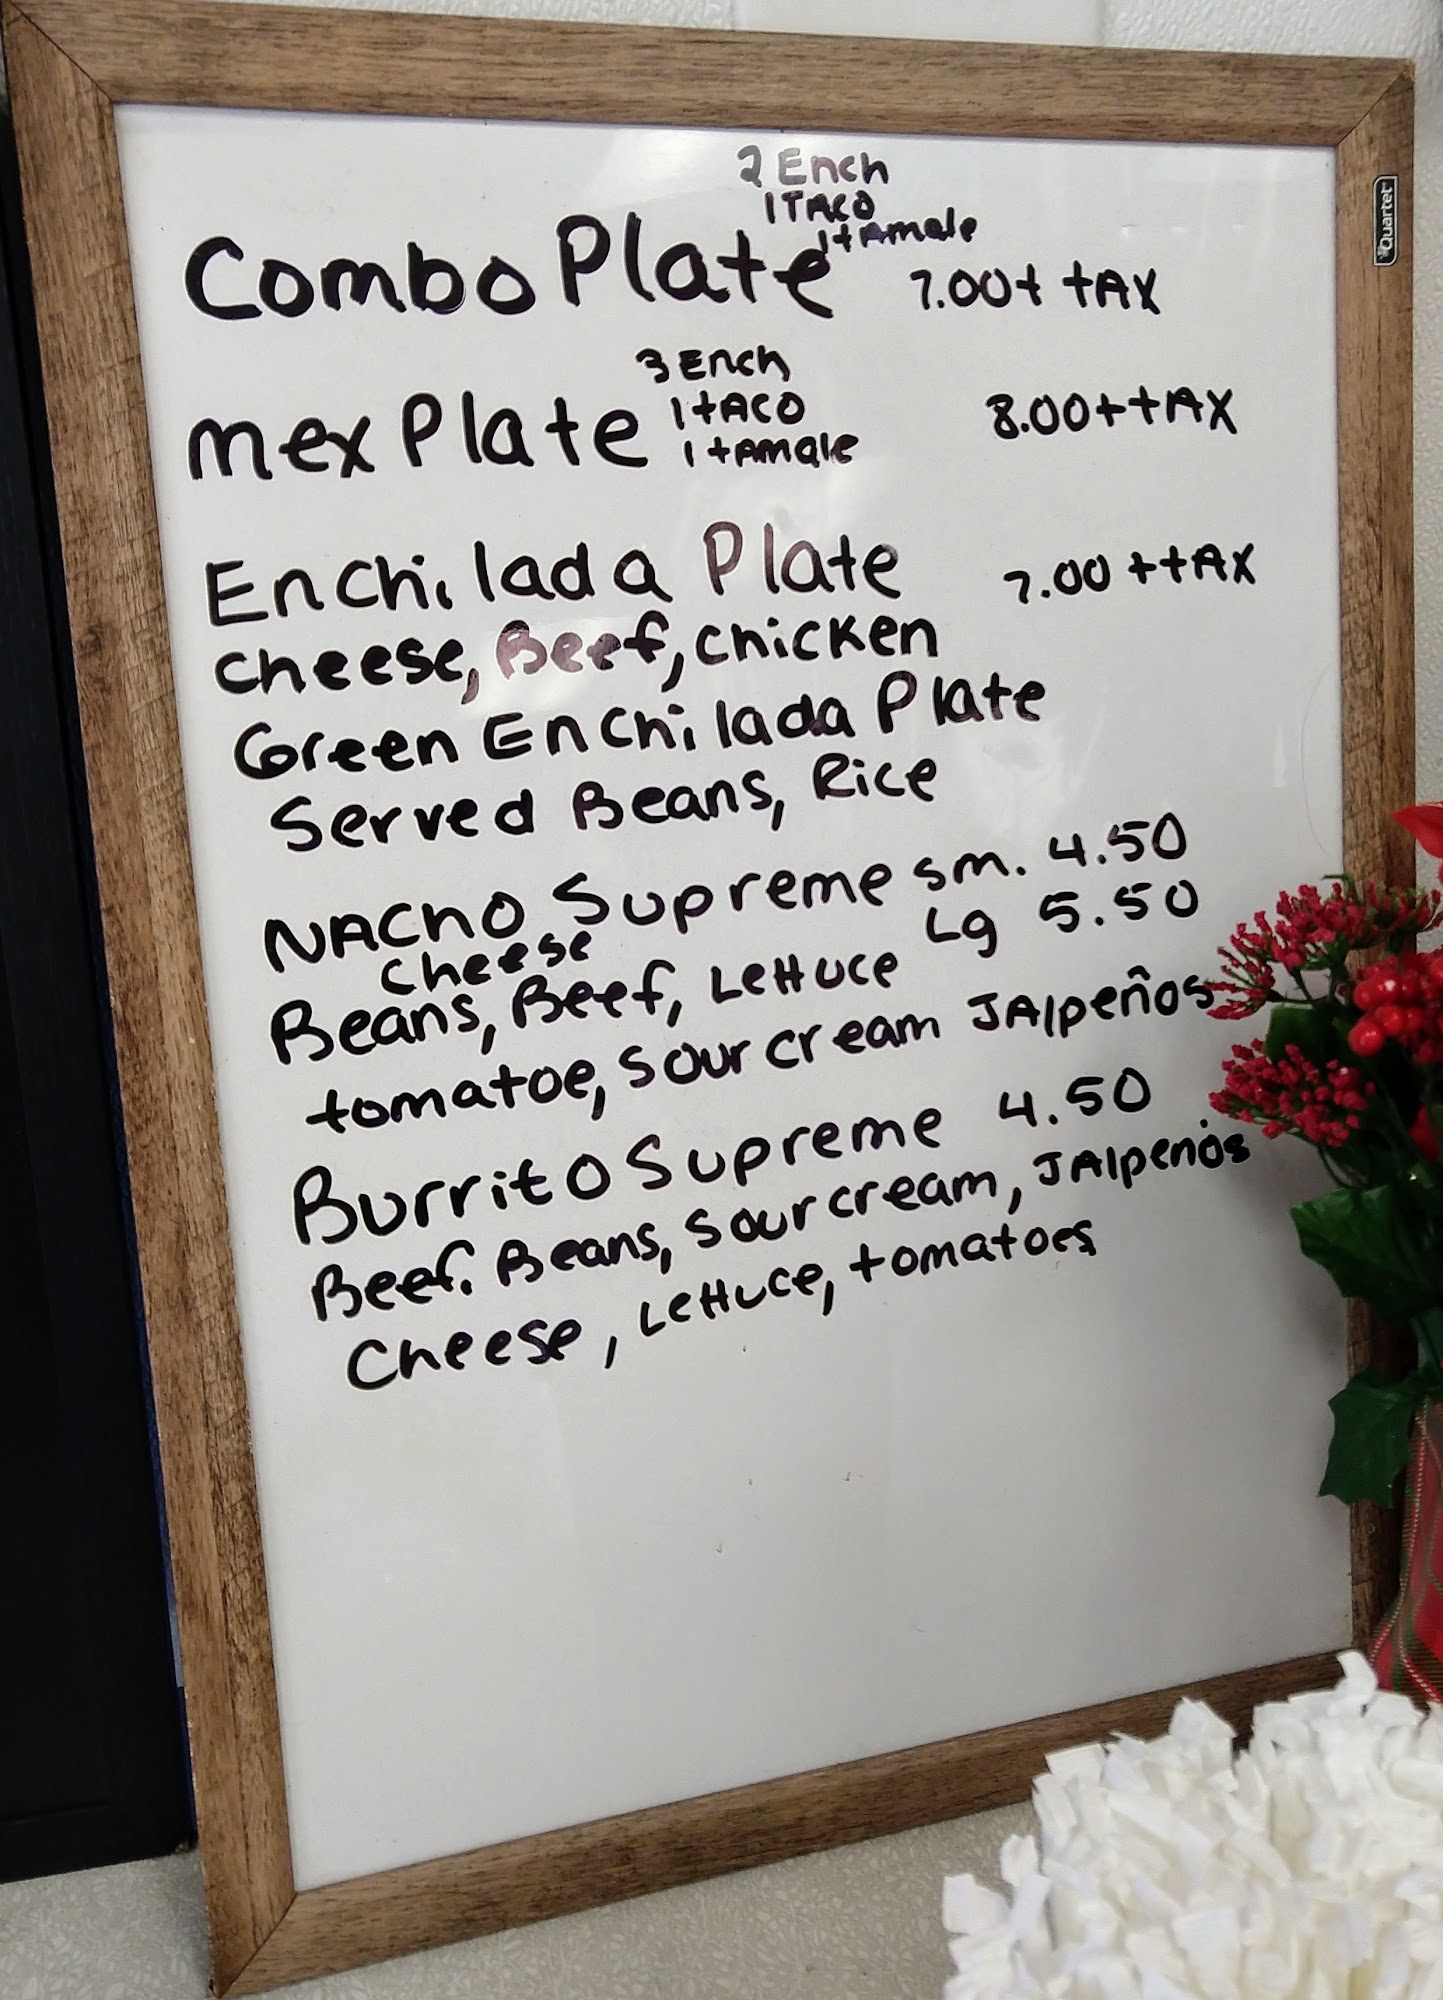 2 Ench
1 TACO
1 tAmale
Combo Plate 7.00 + tAX
3 Ench
1 tACO
1 tAmale
mex Plate 8.00 + tAX
Enchilada Plate 7.00 + tAX
cheese, Beef, chicken
Green Enchilada Plate
Served Beans, Rice
NACHO Supreme sm. 4.50
cheese Lg 5.50
Beans, Beef, Lettuce
tomatoe, sour cream JAlpeños
Burrito Supreme 4.50
Beef. Beans, sour cream, JAlpenos
Cheese, Lettuce, tomatoes
Quartet